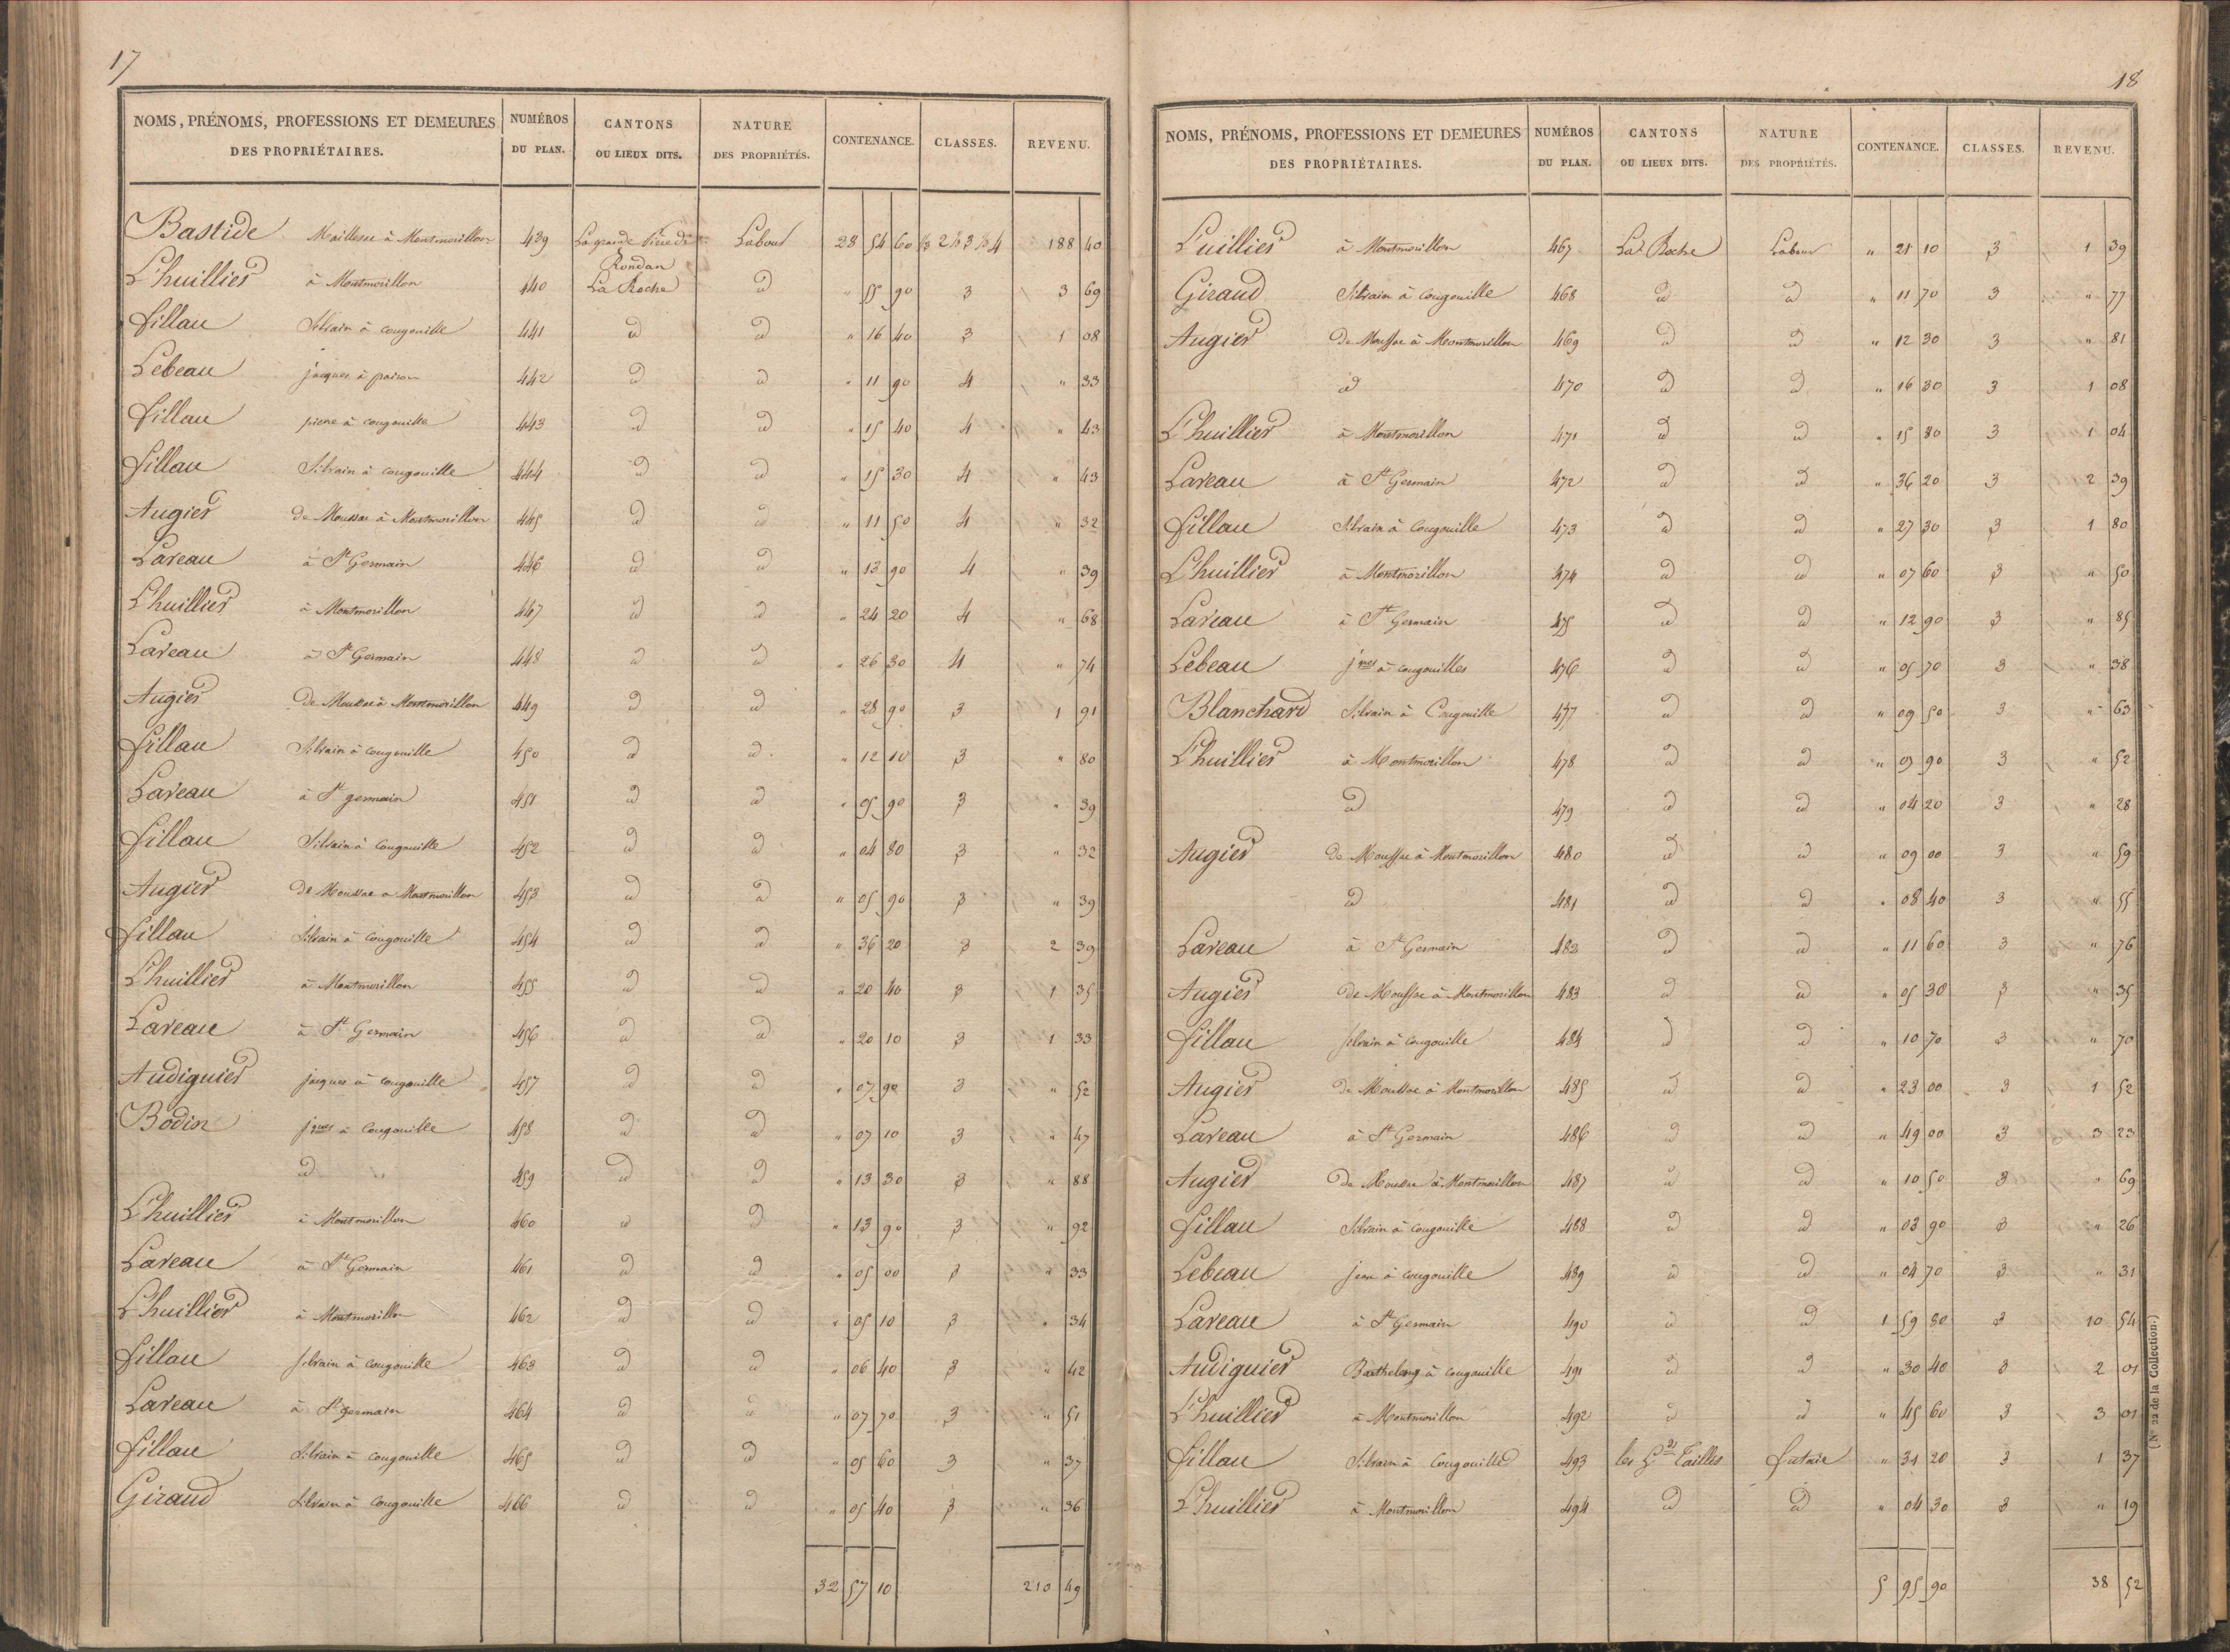 17
NOMS, PRÉNOMS, PROFESSIONS ET DEMEURES DES PROPRIÉTAIRES. NUMÉROS DU PLAN. CANTONS OU LIEUX DITS. NATURE DES PROPRIÉTÉS. CONTENANCE. CLASSES. REVENU.
Bastide à Montmorillon 439 La grande Labour 28 54 60 ⅓ 2 ⅓ 3 ⅓ 4 188 40
Rondan
L'huillier à Montmorillon 440 La Roche id " 55 90 3 3 69
fillau Silvain à cougouille 441 id id " 16 40 3 1 08
Lebeau jacques à 442 id id " 11 90 4 " 33
fillau pierre à cougouille 443 id id " 15 40 4 " 43
fillau Silvain à cougouille 444 id id " 15 30 4 " 43
Augier de Moussac à Montmorillon 445 id id " 11 50 4 " 32
Lareau à St Germain 446 id id " 13 90 4 " 39
L'huillier à Montmorillon 447 id id " 24 20 4 " 68
Lareau à St Germain 448 id id " 26 30 4 " 74
Augier De Moussac à Montmorillon 449 id id " 28 90 3 1 91
fillau Silvain à cougouille 450 id id " 12 10 3 " 80
Lareau à St germain 451 id id " 05 90 3 " 39
fillau Silvain à cougouille 452 id id " 04 80 3 " 32
Augier de Moussac a Montmorillon 453 id id " 05 90 3 " 39
fillau Silvain à cougouille 454 id id " 36 20 3 2 39
L'huillier à Montmorillon 455 id id " 20 40 3 1 35
Lareau à St Germain 456 id id " 20 10 3 1 33
Audiguier jacques à cougouille 457 id id " 07 90 3 " 52
Bodin jques à cougouille 458 id id " 07 10 3 " 47
id 459 id id " 13 30 3 " 88
L'huillier à Montmorillon 460 id id " 13 90 3 " 92
Lareau à St Germain 461 id id " 05 00 3 " 33
L'huillier à Montmorillon 462 id id " 05 10 3 " 34
fillau silvain à cougouille 463 id id " 06 40 3 " 42
Lareau à St germain 464 id id " 07 70 3 " 51
fillau Silvain à cougouille 465 id id " 05 60 3 " 37
Giraud Silvain à cougouille 466 id id " 05 40 3 " 36
32 57 10 210 49
18
NOMS, PRÉNOMS, PROFESSIONS ET DEMEURES DES PROPRIÉTAIRES. NUMÉROS DU PLAN. CANTONS OU LIEUX DITS. NATURE DES PROPRIÉTÉS. CONTENANCE. CLASSES. REVENU.
Luillier à Montmorillon 467 La Roche Labour " 21 10 3 1 39
Giraud Silvain à cougouille 468 id id " 11 70 3 " 77
Augier De Moussac à Montmorillon 469 id id " 12 30 3 " 81
id 470 id id " 16 30 3 1 08
L'huillier à Montmorillon 471 id id " 15 80 3 1 04
Lareau à St Germain 472 id id " 36 20 3 2 39
fillau Silvain à cougouille 473 id id " 27 30 3 1 80
L'huillier à Montmorillon 474 id id " 07 60 3 " 50
Lareau à St Germain 475 id id " 12 90 3 " 85
Lebeau jques à cougouilles 476 id id " 05 70 3 " 38
Blanchard Silvain à Cougouille 477 id id " 09 50 3 " 63
L'huillier à Montmorillon 478 id id " 90 3 " 52
id 479 id id " 04 20 3 " 28
Augier de Moussac à Montmorillon 480 id id " 09 00 3 " 59
id 481 id id " 08 40 3 " 55
Lareau à St Germain 482 id id " 11 60 3 " 76
Augier De Moussac à Montmorillon 483 id id " 05 30 3 " 35
fillau silvain à cougouille 484 id id " 10 70 3 " 70
Augier De Moussac à Montmorillon 485 id id " 23 00 3 1 52
Lareau à St Germain 486 id id " 49 00 3 3 23
Augier De Moussac à Montmorillon 487 id id " 10 50 3 " 69
fillau Silvain à cougouille 488 id id " 03 90 3 " 26
Lebeau jean à cougouille 489 id id " 04 70 3 " 31
Lareau à St Germain 490 id id 1 59 80 3 10 54
Audiguier Barthelemy à cougouille 491 id id " 30 40 3 2 01
L'huillier à Montmorillon 492 id id " 45 60 3 3 01
fillau Silvain à Cougouille 493 les Gdes Tailles futaie " 34 20 3 1 37
L'huillier à Montmorillon 494 id id " 04 30 3 " 19
5 95 90 38 52
(N° 22 de la Collection.)